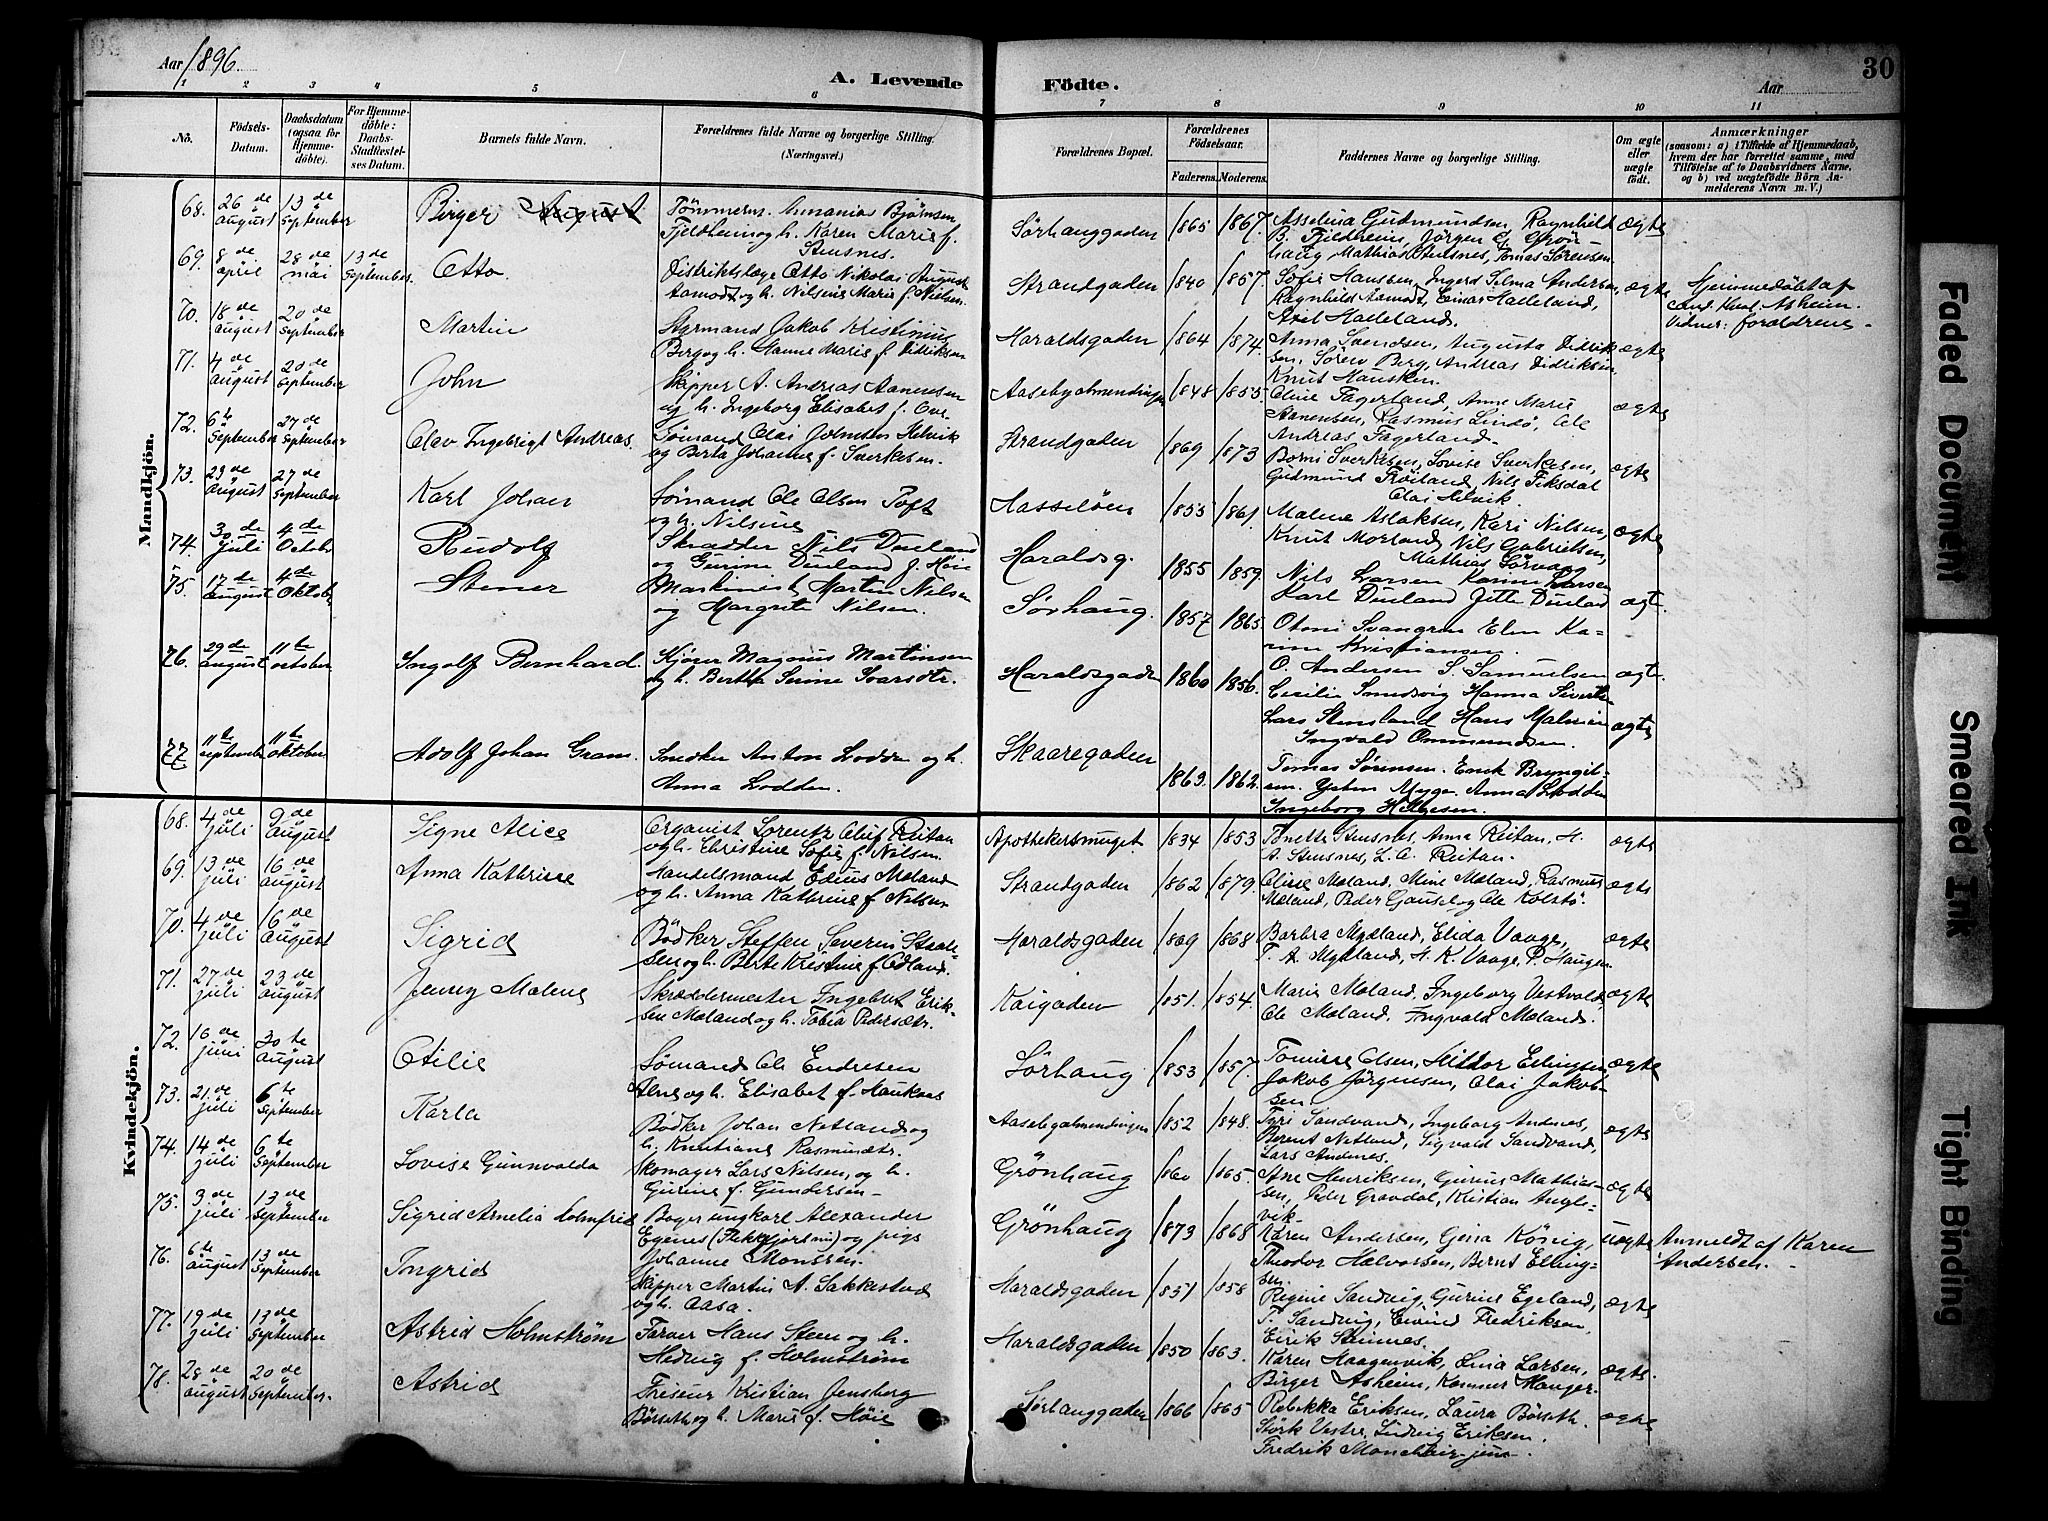 Aar 1896.
A. Levende Födte.
Aar
30
1 2 3 4 5 6 7 8 9 10 11
No.
Födsels-Datum.
Daabsdatum (ogsaa for Hjemmedöbte).
For Hjemmedöbte: Daabs-Stadfæstelses Datum.
Barnets fulde Navn.
Forældrenes fulde Navne og borgerlige Stilling. (Næringsvei.)
Forældrenes Bopæl.
Forældrenes Födselsaar.
Faderens. Moderens.
Faddernes Navne og borgerlige Stilling.
Om ægte eller uægte födt.
Anmærkninger
(saasom: a) i Tilfælde af Hjemmedaab, hvem der har forrettet samme, med Tilföielse af to Daabsvidners Navne, og b) ved uægtefödte Börn Anmelderens Navn m. V.)
Mandkjön.
68. 26de august 13de September Birger August Tömmerm. Annanias Bjørnsen Fjeldheim og h. Karen Marie f. Stensnes. Sørhauggaden 1865 1867. Asselina Gudmundsen, Ragnhild B. Fjeldheim, Jørgen Grønhaug Mathias Stensnes, Tomas Sørensen. ægte
69. 8de april 28de mai 13de September. Otto. Distriktslæge Otto Nikolai August Aamodt og h. Nilsine Marie f. Nielsen. Strandgaden 1840 1857. Sofie Hanssen, Ingerd Selma Andersen, Ragnhild Aamodt, Einar Halleland, Axel Halleland. ægte Hjemmedöbt af cand. theol. Asheim. Vidner: forældrene
70. 18de august 20de September Martin Styrmand Jakob Kristinius Berg og h. Hanne Marie f. Didriksen Haraldsgaden 1864 1874. Anna Svendsen, Augusta Didriksen, Søren Berg, Andreas Didriksen, Knut Hausken. ægte
71. 4de august 20de September John Skipper A. Andreas Aanensen og h. Ingeborg Elisabet f. Aasebyalmendingen 1848 1855. Oline Fagerland, Anne Marie Aanensen, Rasmus Lindö, Ole Andreas Fagerland. ægte
72. 6te September 27de September Olav Ingebrigt Andreas Sømand Olai Johnsen Helvik og Berta Johanne f. Sverkesen. Strandgaden 1869 1873 Borni Sverkesen, Lovise Sverkesen, Gudmund Fröiland, Nils Fiksdal Olai Helvik. ægte
73. 23de august 27de September Karl Johan Sømand Ole Olsen Toft og h. Nilsine Hasseløen 1853 1861. Malene Aslaksen, Kari Nilsen, Knut Morland, Nils Gabrielsen, Mathias Sørvaag ægte
74. 30de Juli 4de Octobr Rudolf Skrædder Nils Dueland og Gurine Dueland f. Høie Haraldsg. 1855 1859. Nils Larsen Karine Larsen Karl Dueland Jette Dueland ægte.
75. 17de august 4de Oktober Stener Maskinist Martin Nilsen og Margrete Nilsen. Sørhaug. 1857 1865. Otoni Svangren Elen Karine Kristiansen. ægte.
76. 29de august 11te octobr Ingolf Bernhard. Kjører Magnus Martinsen og h. Bertha Serine Ivarsdtr. Haraldsgaden 1860 1856. O. Andersen S. Samuelsen Cecilie Smedsvig Hanna Sivertsen Lars Stensland Hans Malmin Ingvald Ommundsen. ægte
77 11te september 11te oktober Adolf Johan Gram. Snedker Anton Lodden og h. Anna Lodden. Skaaregaden 1863. 1862. Tomas Sørensen. Enok Bryngilsen. Anna Lodden Ingeborg Helgesen.
Kvindekjön.
68. 4de juli 9de august Signe Alice Organist Lorentz Oluf Reitan og h. Christine Sofie f. Nilsen Apothekersmuget. 1834 1853 Tonette Stensnes, Anna Reitan, H. A. Stensnes, L. A. Reitan. ægte
69. 13de juli 16de august Anna Kathrine Handelsmand Edeus Moland og h. Anna Kathrine f. Nilsen Strandgaden 1862 1879. Oline Moland, Mine Moland, Rasmus Moland, Peder Gausel og Ole Kolstö. ægte
70. 4de juli 16de august Sigrid Bödker Steffen Severin Staalesen og h. Berte Kristine f. Odland. Haraldsgaden 1869 1868 Barbra Mydland, Elida Vaage, T. A. Mydland, H. K. Vaage, P. Haugen ægte
71. 27de juli 23de august Jenny Malene Skræddermester Ingebret Eriksen Moland og h. Tobia Pedersdtr. Kaigaden 1851. 1854. Marie Moland, Ingeborg Vestvold, Ole Moland, Ingvald Moland. ægte
72. 16de juni 30te august Otilie Sømand Ole Endresen og h. Elisabet f. Haukaas Sörhaug 1853 1857. Tomine Olsen, Hildor Ellingsen Jakob Jørgensen, Olai Jakobsen. ægte
73. 21de juli 6te September Karla Bødker Johan Netland og h. Kristiane Rasmusdtr. Aasebyalmendingen 1852 1848. Tyri Sandvand, Ingeborg Andenes, Berent Netland, Sigvald Sandvand, Lars Andenes. ægte
74. 14de juli 6te September Lovise Gunnvalda Skomager Lars Nilsen, og h. Gurine f. Gundersen Grönhaug 1860 1865. Ane Henriksen, Gurine Mathiassen, Peder Gravdal, Kristian Anglevik. ægte
75. 3de juli 13de September Sigrid Amelia Holmfrid Bager ungkarl Alexander Egenes (Flekkefjorsmi) og pige Johanne Monssen. Grönhaug 1873 1868 Karen Andersen, Gina König, Theodor Halvorsen, Bernt Ellingsen. uægte Anmeldt af Karen Andersen.
76. 6te august 13de September Ingrid Skipper Martin A. Sakkestad og h. Aasa. Haraldsgaden 1851 1858 Regine Sandvig, Gurine Egeland, T. Sandvig, Eivind Fredriksen, Eirik Stennes. ægte
77. 19de juli 13de September Astrid Holmström Farver Hans Steen og h. Hedvig f. Holmström Haraldsgaden 1850 1863. Karen Haagenvik, Lina Larsen, Birger Asheim, Konner Hauger. ægte.
78. 28de august 20de September. Astrid Friseur Kristian Jensberg Börseth og h. Marie f. Høie Sørhauggaden 1866 1865 Rebekka Eriksen, Laura Börseth. Störk Vestre, Ludvig Eriksen. Fredrik Monclair jun. ægte
Faded Document
Smeared Ink
Tight Binding